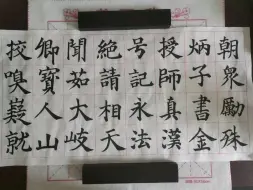 朝眾勵殊
炳子書金
授師真漢
号記永法
絕請相天
聞茹大岐
卿寶人山
挍嗅嶷就